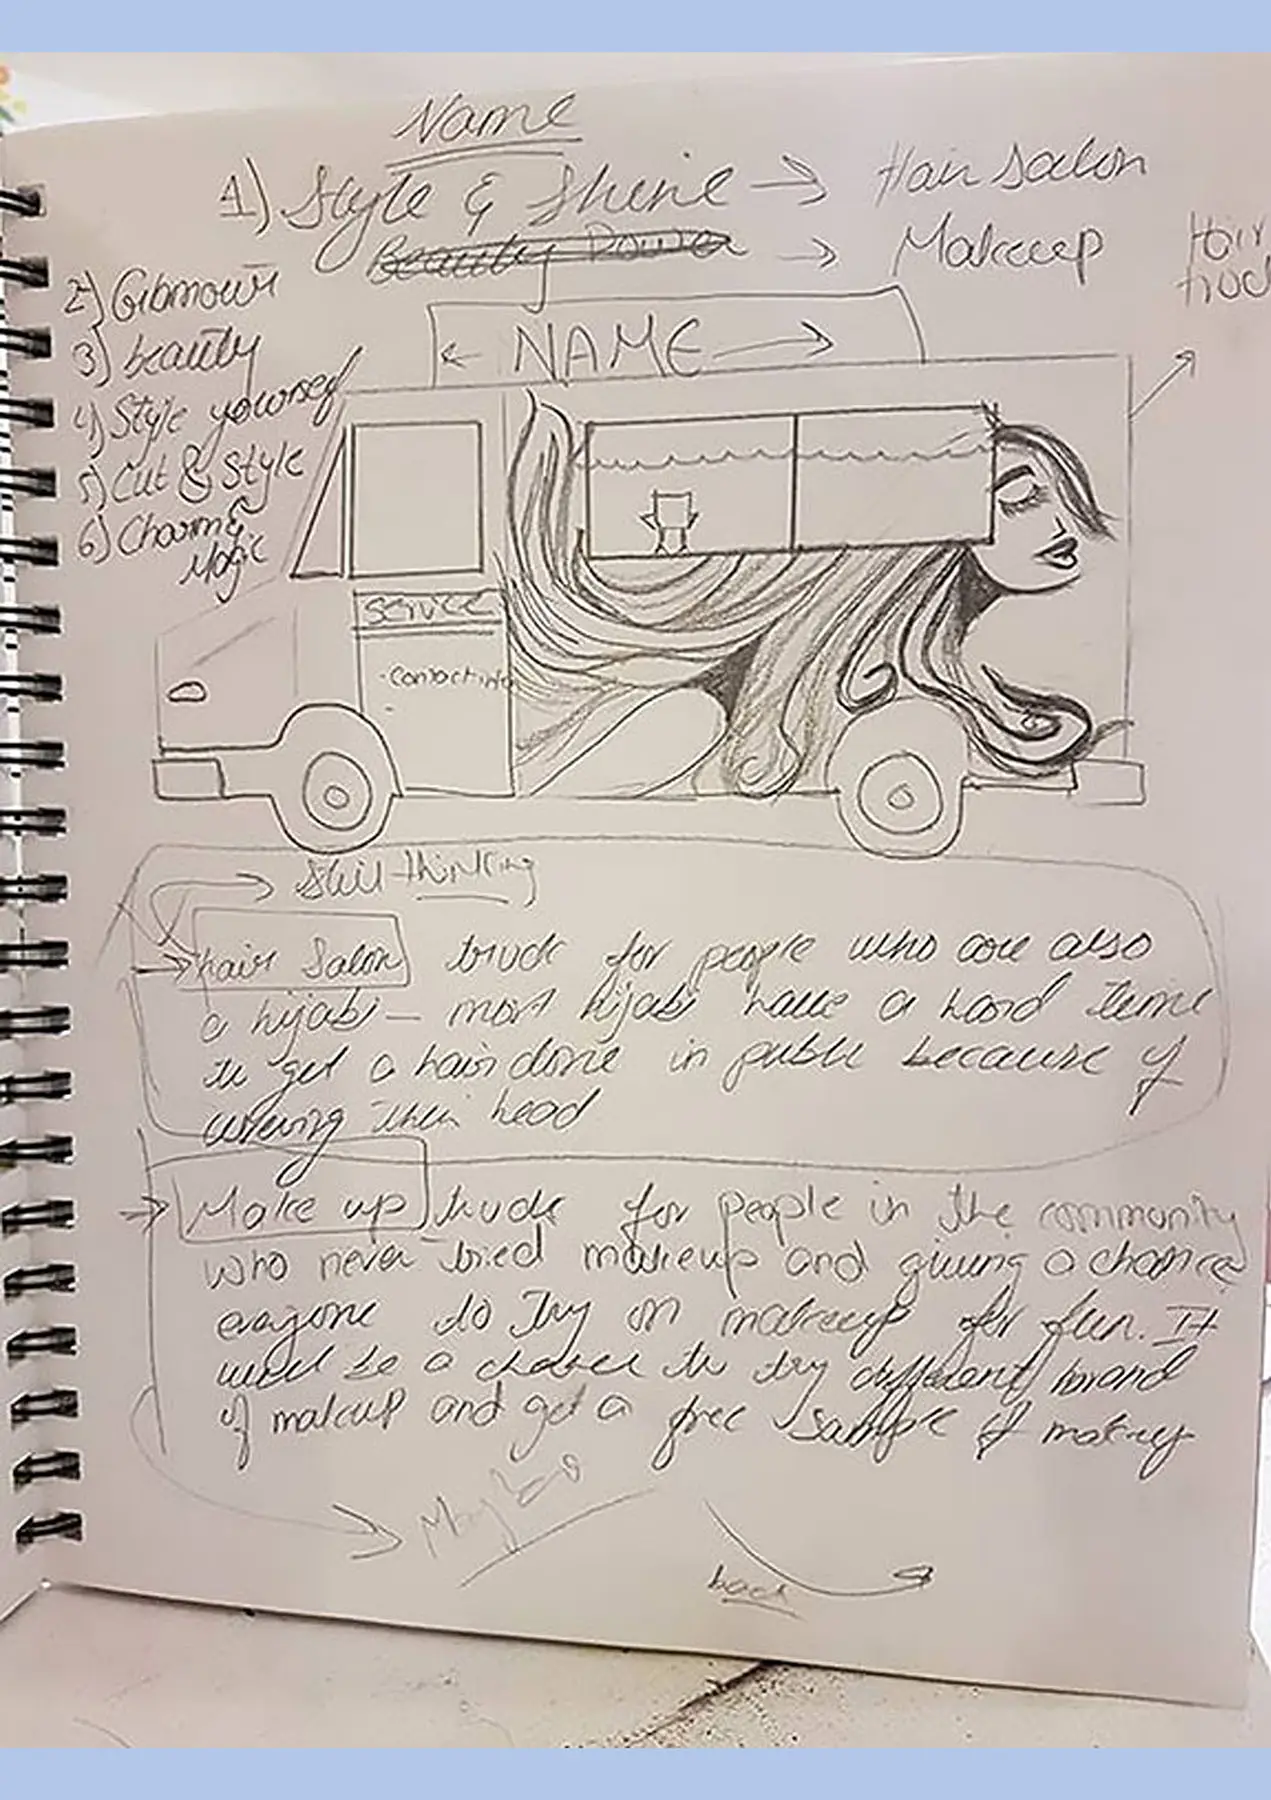 Name
1) Style & Shine → Hair Salon
Beauty Power → Makeup
Hair
truck
2) Glamour
3) beauty
4) Style yourself
5) Cut & Style
6) Charm &
Magic
← NAME →
Service
- Contact info
→ Still thinking
→ hair Salon truck for people who are also
a hijabi – most hijabi have a hard time
to get a hair done in public because of
covering their head
→ Make up truck for people in the community
who never tried makeup and giving a chance
everyone to try on makeup for fun. It
would be a chance to try different brand
of makeup and get a free sample of makeup
back